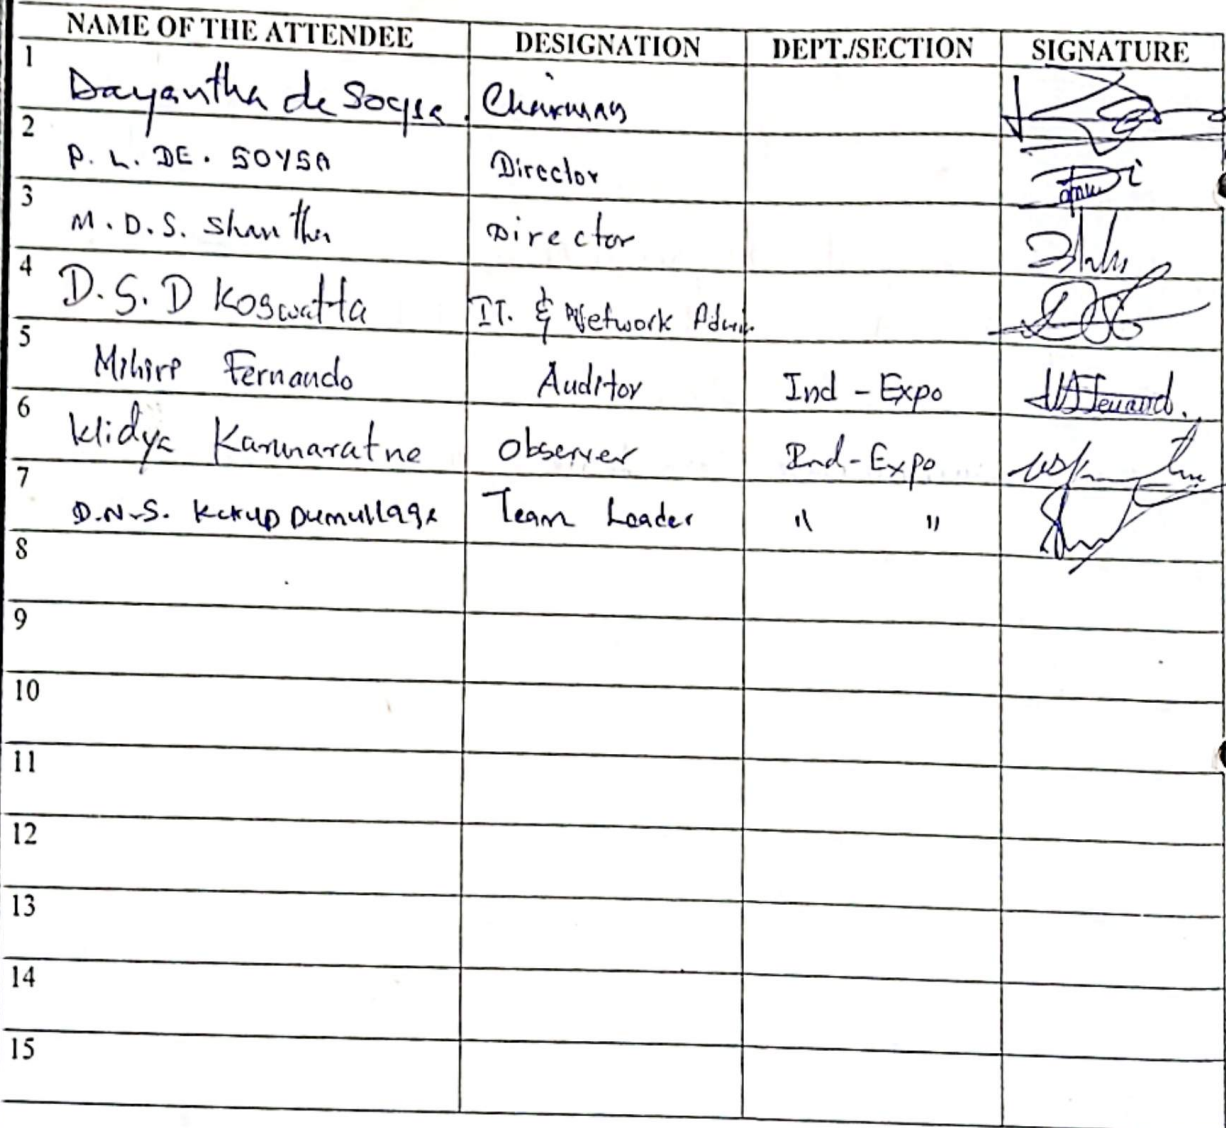 NAME OF THE ATTENDEE DESIGNATION DEPT./SECTION SIGNATURE
1 Dayantha de Soysa. Chairman
2 P. L. DE. SOYSA Director
3 M.D.S. Shantha Director
4 D.S.D Koswatta IT. & Network Admin.
5 Mihiri Fernando Auditor Ind - Expo
6 Widya Karunaratne Observer Ind - Expo
7 D.N.S. Team Leader " "
8
9
10
11
12
13
14
15